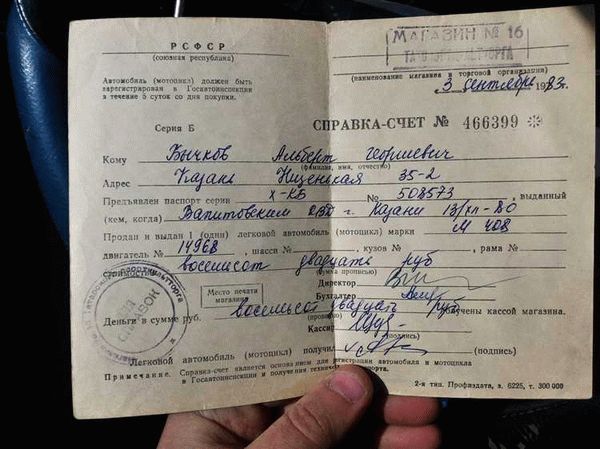 РСФСР
(союзная республика)
Автомобиль (мотоцикл) должен быть
зарегистрирован в Госавтоинспекции
в течение 5 суток со дня покупки.
МАГАЗИН № 16
(наименование магазина и торговой организации)
3 Сентября 1983г.
Серия Б
СПРАВКА-СЧЕТ № 466399
Кому Бычков Альберт Георгиевич
(фамилия, имя, отчество)
Адрес Казань 35-2
Предъявлен паспорт серии X-КБ № 508573, выданный
(кем, когда) Вахитовским ОВД г. Казани
Продан и выдан 1 (один) легковой автомобиль (мотоцикл) марки М 408
двигатель № 14968, шасси №, кузов №, рама №
стоимостью восемьсот двадцать руб
(сумма прописью)
Директор
Место печати
магазина
Бухгалтер
Деньги в сумме руб. восемьсот двадцать руб получены кассой магазина.
(прописью)
Кассир
(подпись)
Легковой автомобиль (мотоцикл) получил (подпись)
Примечание. Справка-счет является основанием для регистрации автомобиля и мотоцикла
в Госавтоинспекции и получения паспорта.
2-я тип. Профиздата, з. 6225, т. 300 000